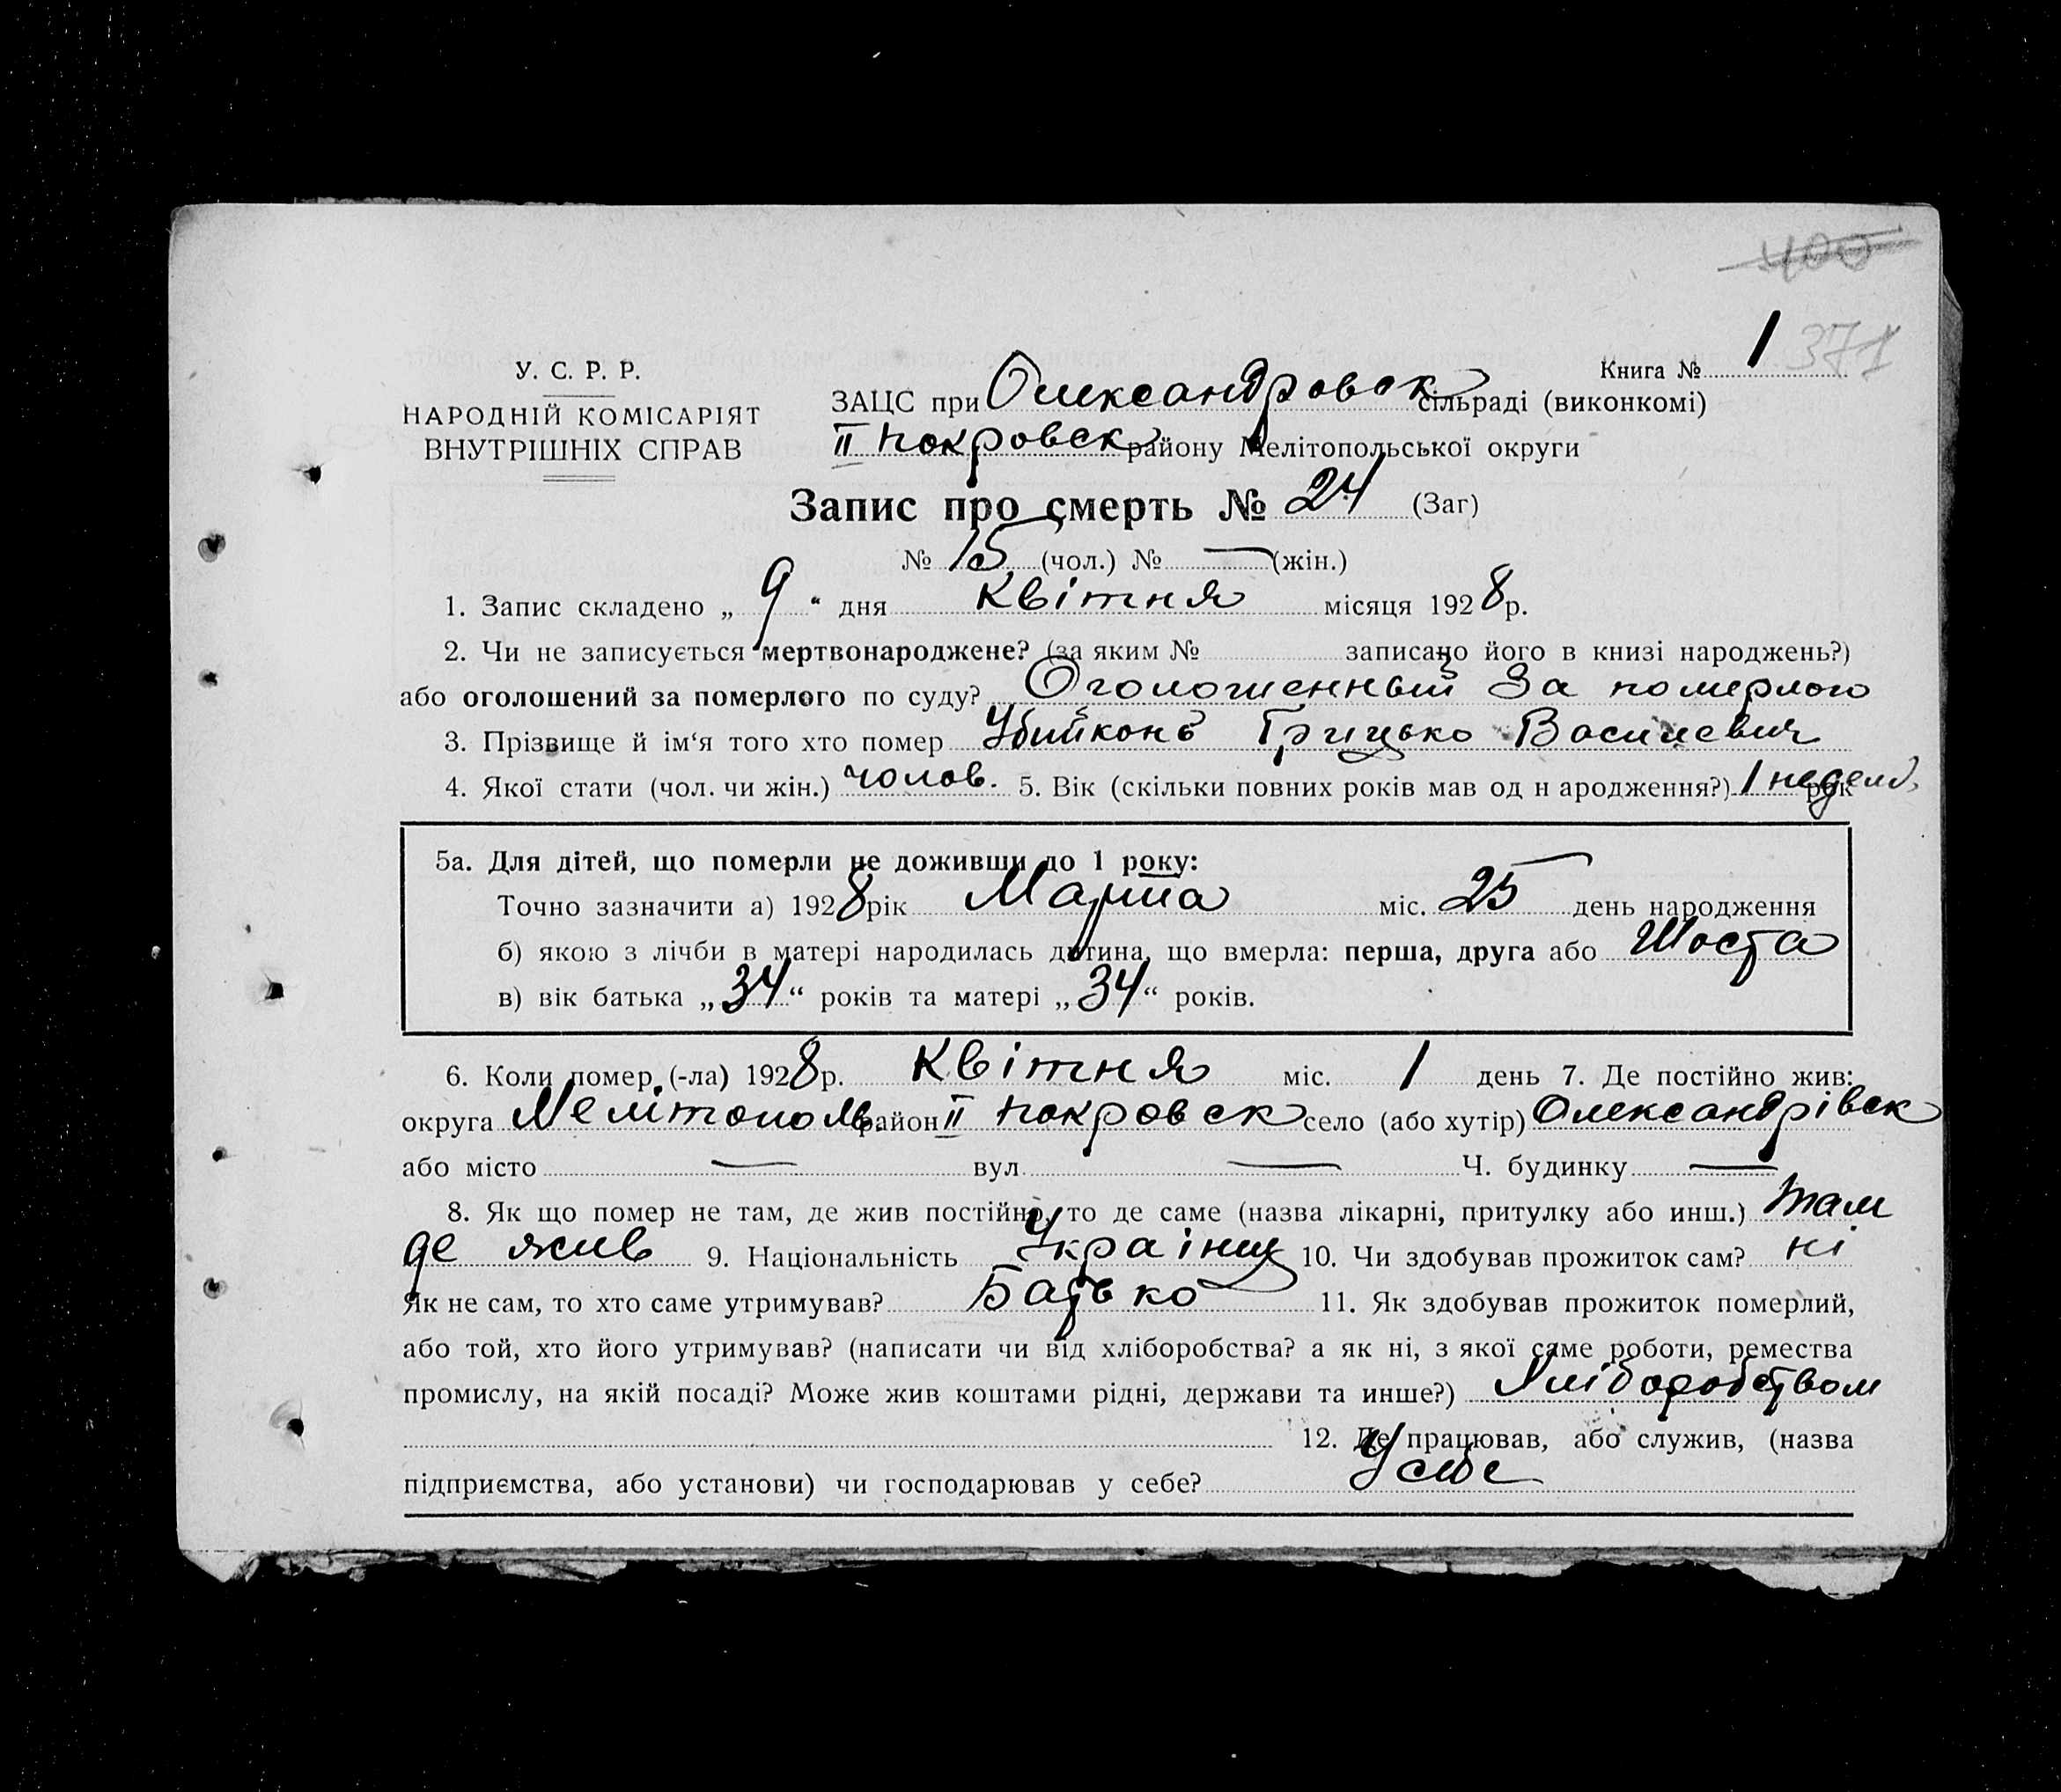 400
Книга № 1 371
У. С. Р. Р.
НАРОДНІЙ КОМІСАРІЯТ
ВНУТРІШНІХ СПРАВ
ЗАЦС при Олександровск сільраді (виконкомі)
II Покровск району Мелітопольської округи
Запис про смерть № 24 (Заг)
№ 15 (чол.) № — (жін.)
1. Запис складено „ 9 “ дня Квітня місяця 1928 р.
2. Чи не записується мертвонароджене? (за яким № записано його в книзі народжень?)
або оголошений за померлого по суду? Оголошенный За померлого
3. Прізвище й ім‘я того хто помер Грицько Василиевич
4. Якої стати (чол. чи жін.) чолов. 5. Вік (скільки повних років мав од н ародження?) 1 недели рок
5а. Для дітей, що померли не доживши до 1 року:
Точно зазначити а) 1928 рік Марта міс. 25 день народження
б) якою з лічби в матері народилась дитина, що вмерла: перша, друга або Шоста
в) вік батька „34“ років та матері „34“ років.
6. Коли помер (-ла) 1928 р. Квітня міс. 1 день 7. Де постійно жив:
округа Мелітополь район II Покровск село (або хутір) Олександрівск
або місто — вул — Ч. будинку —
8. Як що помер не там, де жив постійно, то де саме (назва лікарні, притулку або инш.) там
де жив 9. Національність Украінец 10. Чи здобував прожиток сам? ні
Як не сам, то хто саме утримував? Батько 11. Як здобував прожиток померлий,
або той, хто його утримував? (написати чи від хліборобства? а як ні, з якої саме роботи, ремества
промислу, на якій посаді? Може жив коштами рідні, держави та инше?) Хліборобством
12. Де працював, або служив, (назва
підприємства, або установи) чи господарював у себе? У себе